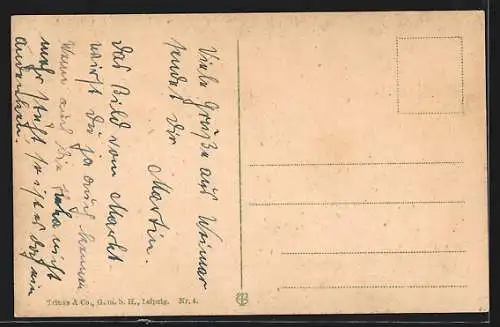 Viele Grüße aus Weimar
sendet dir
Martin.
Das Bild vom Markt
wirst du ja auch kennen
Wenn auch die
mehr steht so ist es doch ein
Andenken.
Trinks & Co., G. m. b. H., Leipzig. Nr. 4.